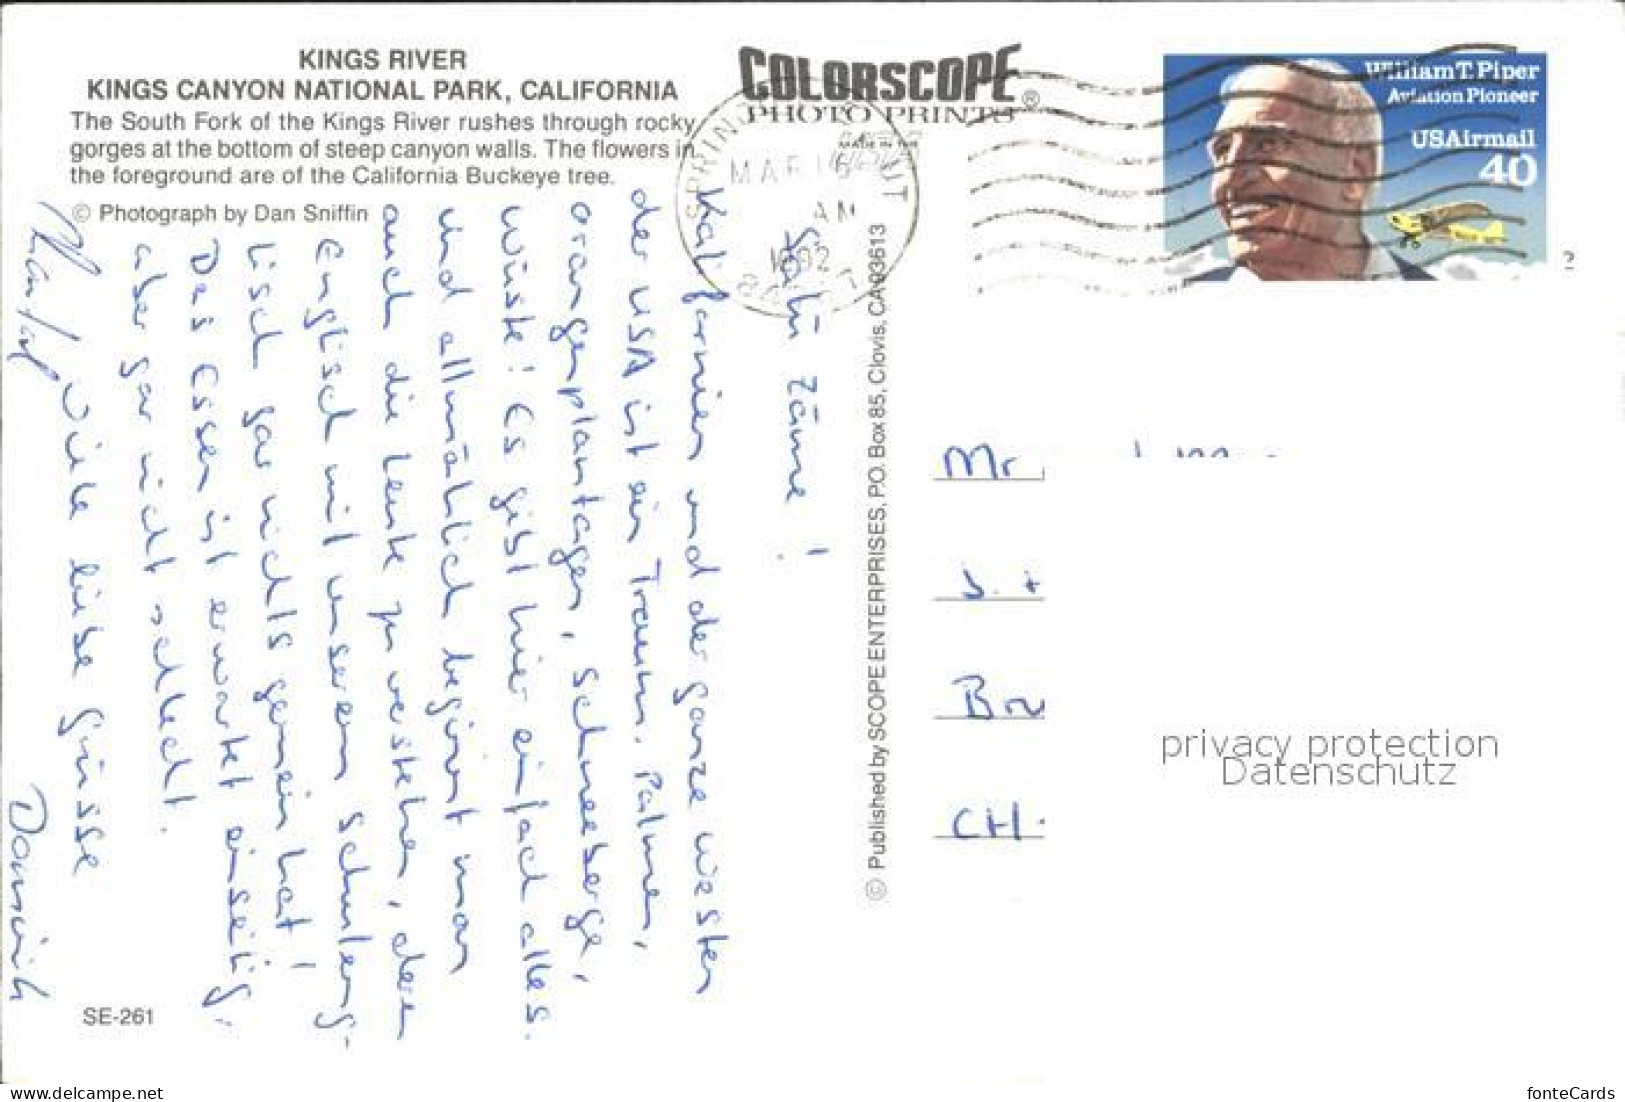 KINGS RIVER
KINGS CANYON NATIONAL PARK, CALIFORNIA
The South Fork of the Kings River rushes through rocky
gorges at the bottom of steep canyon walls. The flowers in
the foreground are of the California Buckeye tree.
© Photograph by Dan Sniffin
COLORSCOPE®
PHOTO PRINTS
MADE IN THE
MAR 16
AM
1992
William T. Piper
Aviation Pioneer
USAirmail
40
2
Salü zäme!
Kalifornien und der ganze Westen
der USA ist ein Traum. Palmen,
Orangenplantagen, Schneeberge,
Wüste! Es gibt hier einfach alles.
und allmählich beginnt man
auch die Leute zu verstehen, denn
Englisch mit unserem Schuleng-
lisch gar nichts gemein hat!
Das Essen ist erwartet einseitig,
aber gar nicht schlecht.
Viele liebe Grüsse
Dominik
© Published by SCOPE ENTERPRISES, P.O. Box 85, Clovis, CA 93613
Mr.
CH-
privacy protection
Datenschutz
SE-261
delcampe.net
fonteCards